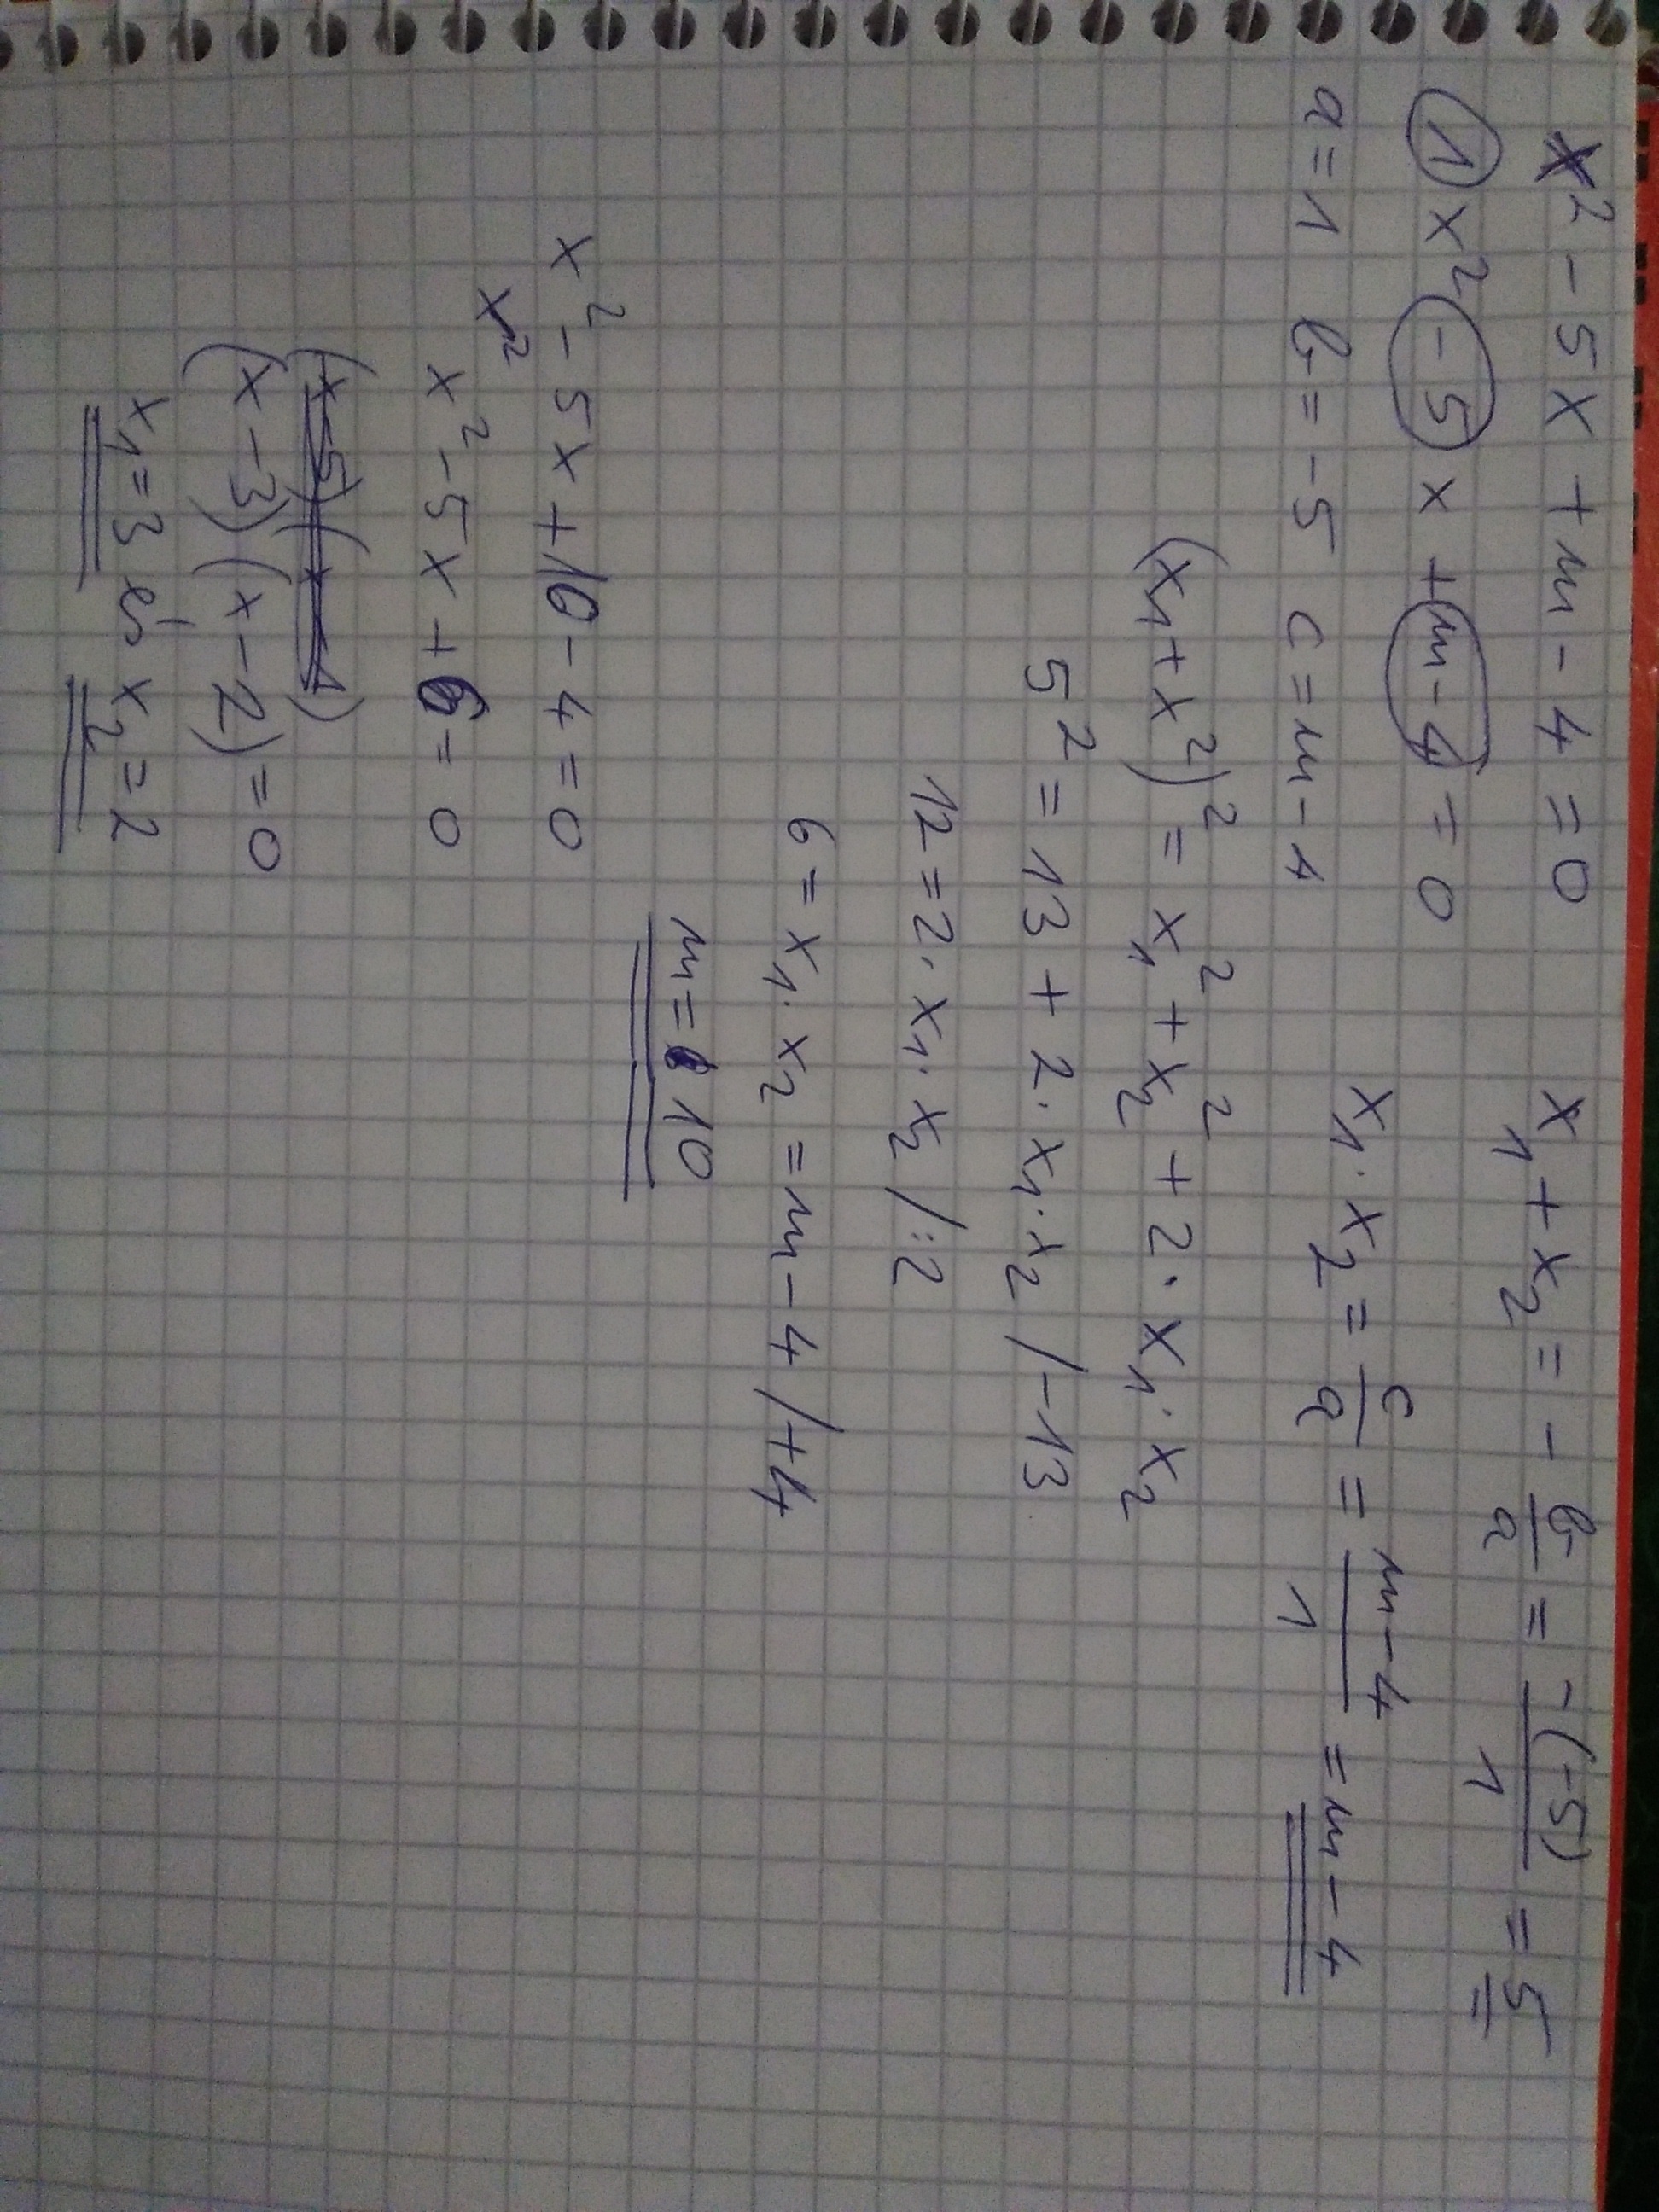 x² - 5x + m - 4 = 0
1 x² - 5 x + m - 4 = 0
a = 1 b = -5 c = m - 4
x₁ + x₂ = - b/a = -(-5)/1 = 5
x₁ · x₂ = c/a = m-4/1 = m - 4
(x₁ + x²)² = x₁² + x₂² + 2 · x₁ · x₂
5² = 13 + 2 · x₁ · x₂ / -13
12 = 2 · x₁ · x₂ / :2
6 = x₁ · x₂ = m - 4 / +4
m = 10
x² - 5x + 10 - 4 = 0
x²
x² - 5x + 6 = 0
(x - 3)(x - 2) = 0
x₁ = 3 és x₂ = 2